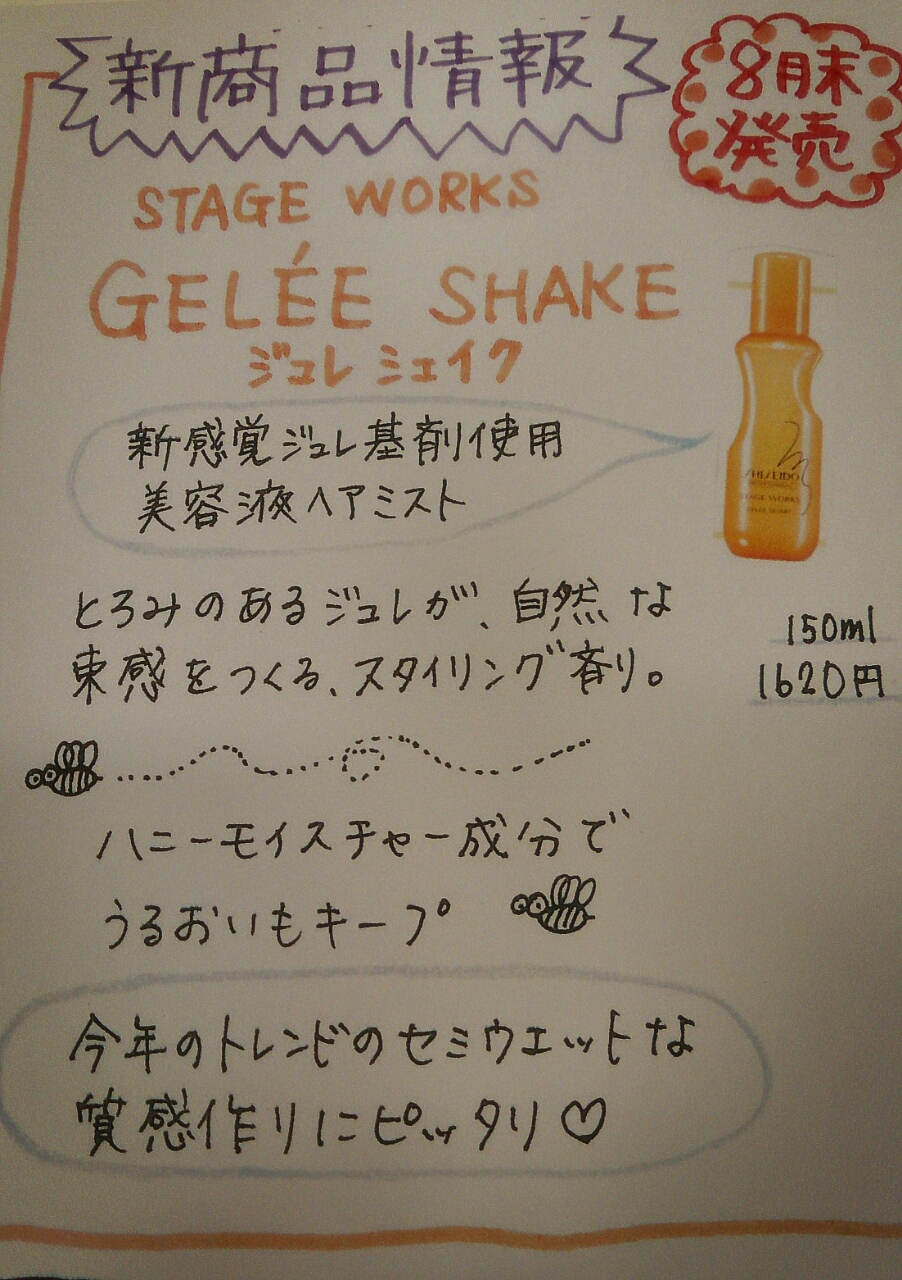 新商品情報
8月末
発売
STAGE WORKS
GELÉE SHAKE
ジュレ シェイク
新感覚ジュレ基剤使用
美容液ヘアミスト
SHISEIDO
PROFESSIONAL
STAGE WORKS
GELEE SHAKE
とろみのあるジュレが、自然な
束感をつくる、スタイリング剤。
150ml
1620円
ハニーモイスチャー成分で
うるおいもキープ
今年のトレンドのセミウエットな
質感作りにピッタリ♡